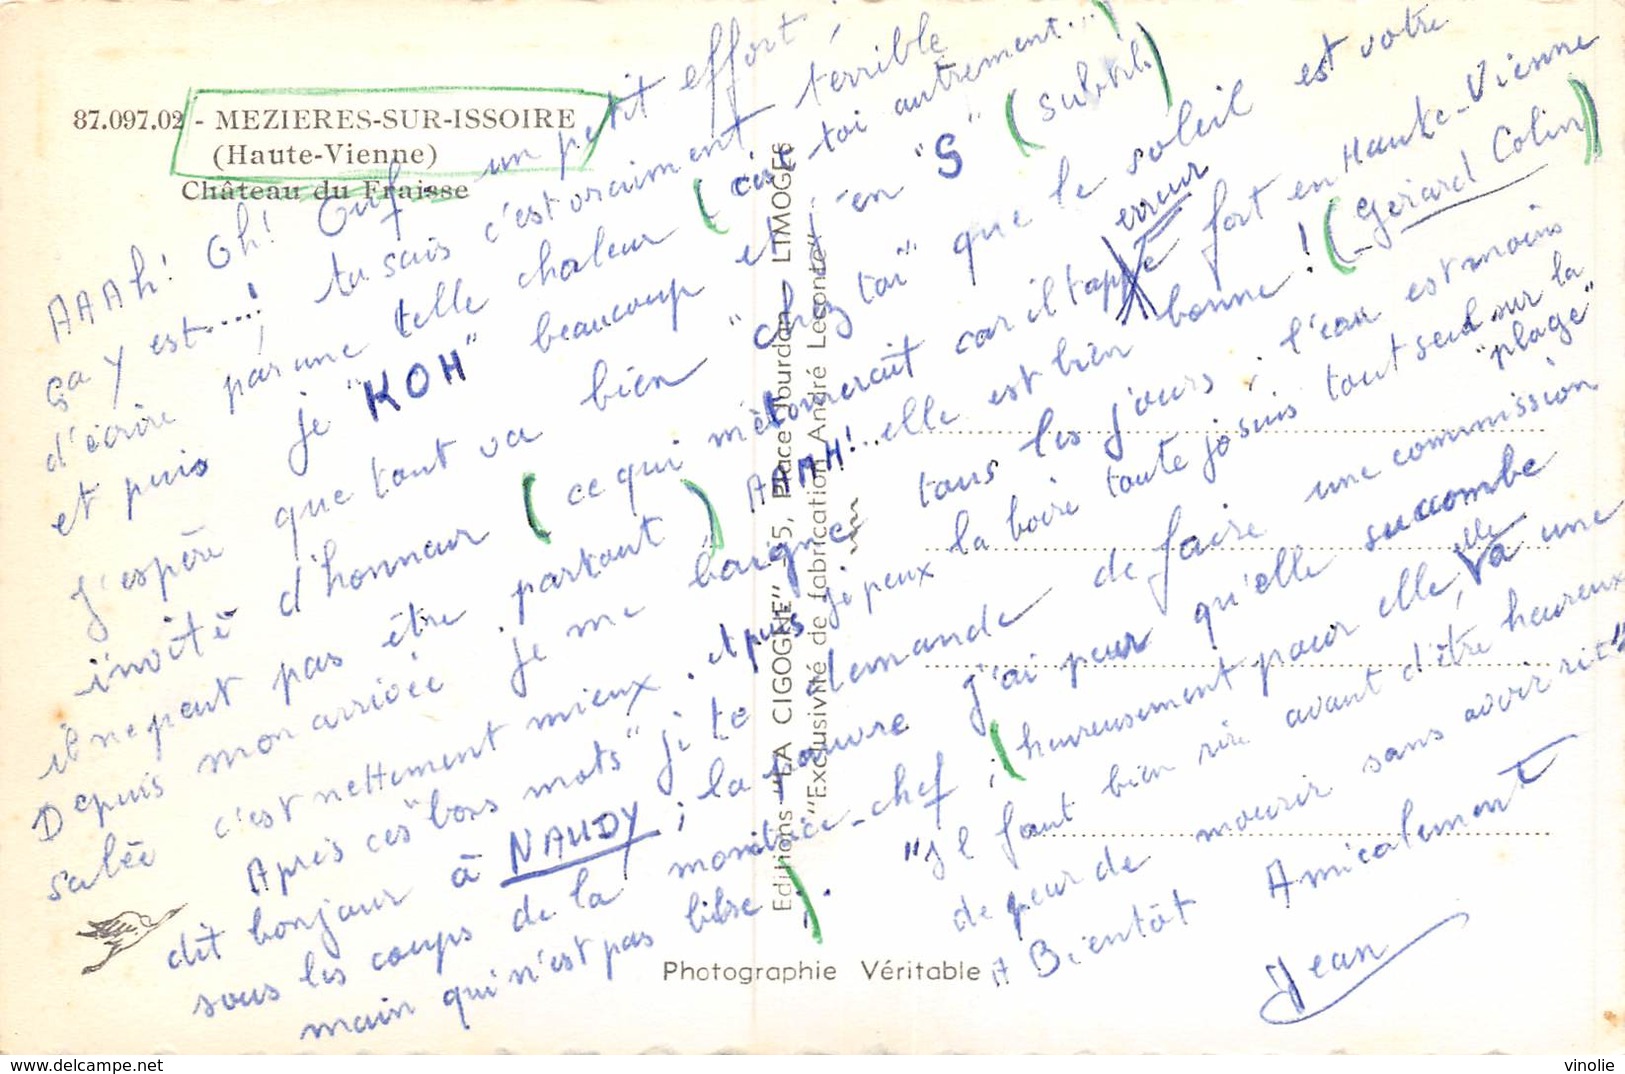 87.097.02 - MEZIERES-SUR-ISSOIRE
(Haute-Vienne)
Château du Fraisse
AAAh! Oh! Ouf.. un petit effort;
ça y est....! tu sais c'est vraiment terrible
d'écrire par une telle chaleur (cuit toi autrement...)
et puis je "KOH" beaucoup et en "S" (subtil)
J'espère que tout va bien "chez toi" que le soleil est votre
invité d'honneur (ce qui m'étonnerait car il tape erreur fort en Haute-Vienne
il ne peut pas être partout) AAAH!...elle est bien bonne! (Gérard Colin)
Depuis mon arrivée je me baigne tous les jours; l'eau est moins
salée c'est nettement mieux. et puis je peux la boire toute je suis tout seul sur la "plage"
Après ces "bons mots" je te demande de faire une commission
dit bonjour à NAUDY; la pauvre j'ai peur qu'elle succombe
sous les coups de la monitrice-chef; (heureusement pour elle, elle va une
main qui n'est pas libre) .. "Il faut bien rire avant d'être heureux
de peur de mourir sans avoir rit"
A Bientôt Amicalement
Jean
Editions "LA CIGOGNE" - 5, Place Jourdan - LIMOGES
"Exclusivité de fabrication André Leconte"
Photographie Véritable
www.delcampe.net
vinolie